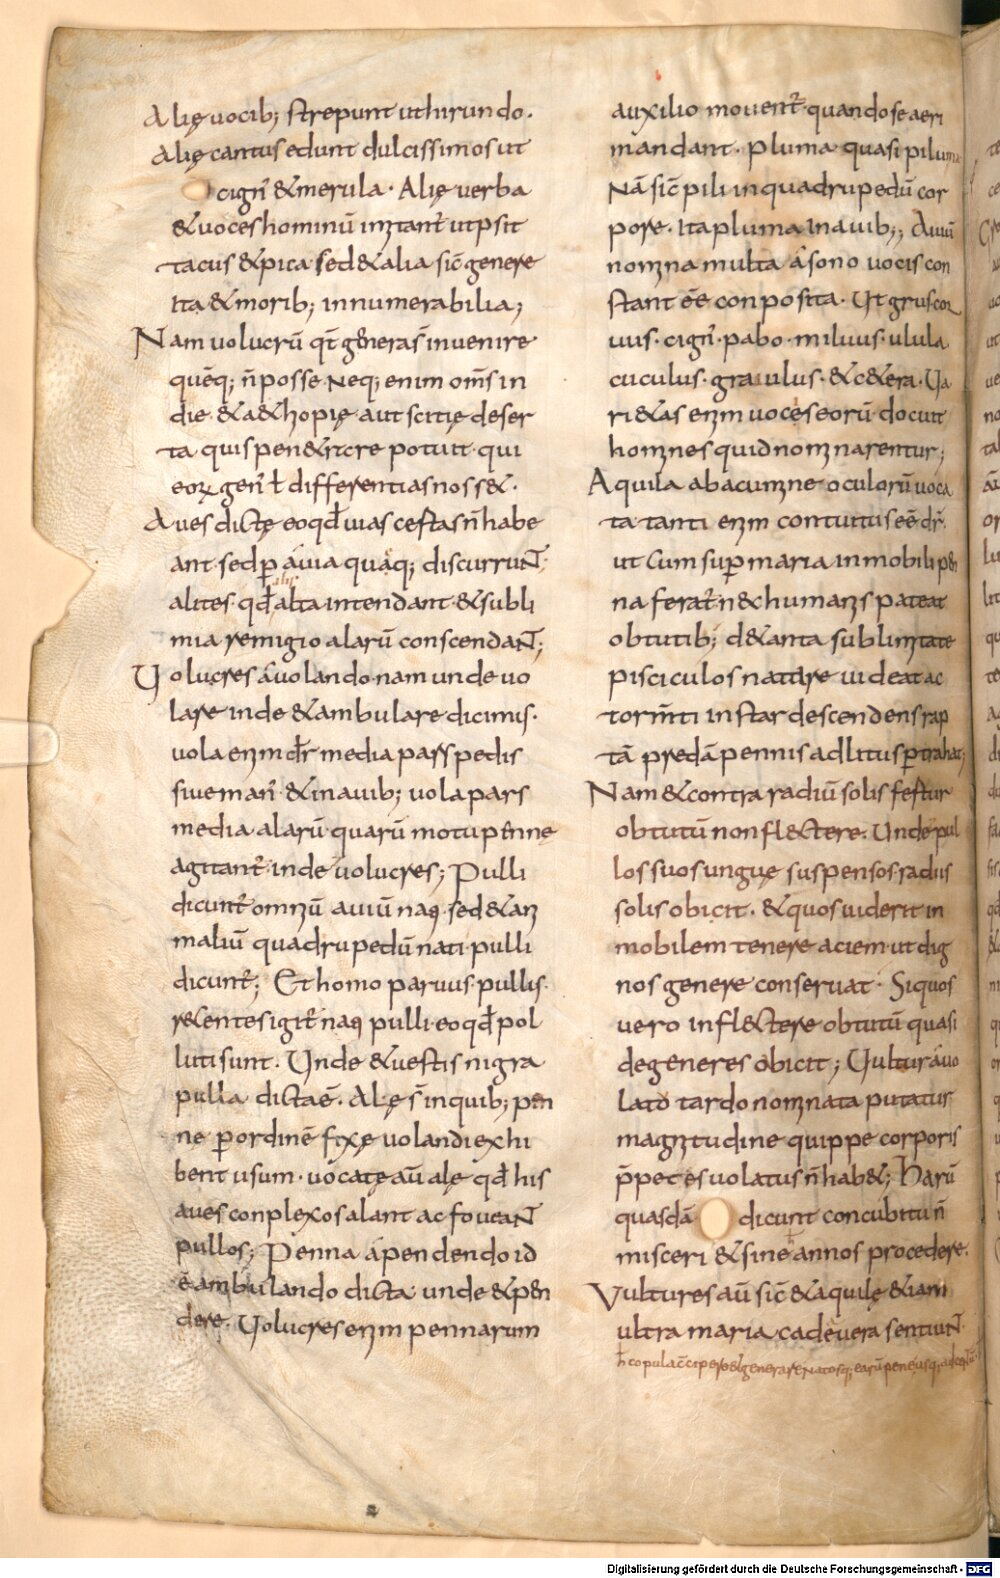 Alię uocib; strepunt ut hirundo.
Alię cantus edunt dulcissimos ut
cign̄ & merula. Alię verba
& uoces hominū imitant̄ ut psit
tacus & pica sed & alia sic̄ genere
Ita & morib; innumerabilia;
Nam uolucrū qt̄ genera s̄ inuenire
quēq; n̄ posse Neq; enim om̄s in
die & a&hiopię aut scitię deser
ta quis pen&rcre potuit qui
eoꝝ gen̄ ł differentias noss&.
Aues dictę eo qđ uias certas n̄ habe
ant sed ꝑ auia quaq; discurruNT;
alites qđ alta intendant & subli
mia remigio alarū conscendaNT;
Uolucres a uolando nam unde uo
lare inde & ambulare dicimus.
uola enim dr̄ media pars pedis
siue man̄ & in auib; uola pars
media alarū quarū motu pennę
agitant̄ inde uolucres; Pulli
dicunt̄ omniū auiū nati sed & ani
maliū quadrupedū nati pulli
dicunt̄; Et homo paruus pullis
recentes igit̄ nati pulli eo qđ pol
luti sunt. Unde & uestis nigra
pulla dicta ē. Alę s̄ in quib; pen
ne ꝑ ordinē fixę uolandi exhi
bent usum. uocatę aū alę qđ his
aues conplexos alant ac foueaNT
pullos; Penna a pendendo id
ē ambulando dicta unde & pen
dere. Uolucres enim pennarum
auxilio mouent̄ quando se aeri
mandant. Pluma quasi piluma
Nā sic̄ pili in quadrupedū cor
pore. Ita pluma in auib;; Auiū
nomina multa a sono uocis con
stant ēē conposita. Ut grus cor
uus. cign̄. pabo. miluus. ulula
cuculus. graculus. & c&era. Ua
ri&as enim uoces eorū docuit
homines quid nominarentur;
Aquila ab acumine oculorū uoca
ta tanti enim contuitus ēē dr̄
ut Cum suꝑ maria inmobili pen
na ferat̄ nec humanis pateat
obtutib; de tanta sublimitate
pisciculos natare uideat ac
torm̄ti instar descendens rap
tā predā pennis ad litus ꝑtrahat;
Nam & contra radiū solis fertur
obtutū non fl&ctere. Unde pul
los suos ungue suspensos radiis
solis obicit. & quos uiderit in
mobilem tenere aciem ut dig
nos genere conseruat. Si quos
uero infl&ctere obtutū quasi
degeneres obicit; Uultur a uo
lato tardo nominata putatur
magnitudine quippe corporis
p̄petes uolatus n̄ hab&; Harū
quasdā dicunt concubitu n̄
misceri & sine annos procedere.
Vultures aū sic̄ & aquilę & iam
ultra maria cadeuera sentiuNT